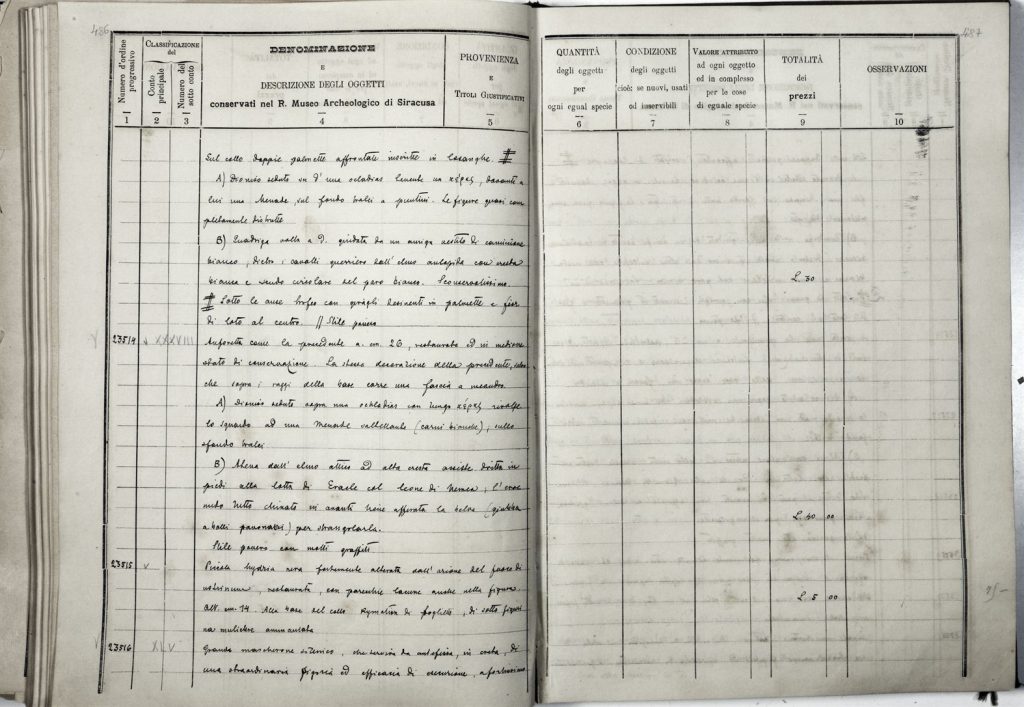 486
Numero d'ordine progressivo
CLASSIFICAZIONE del
Conto principale
Numero del sotto conto
DENOMINAZIONE
E
DESCRIZIONE DEGLI OGGETTI
conservati nel R. Museo Archeologico di Siracusa
PROVENIENZA
E
TITOLI GIUSTIFICATIVI
1 2 3 4 5
Sul collo doppie palmette affrontate inscritte in losanghe. #
A) Dioniso seduto su d'una ocladias tenente un κέρας, davanti a
lui una Menade, sul fondo tralci a puntini. Le figure quasi com
pletamente distrutte
B) Quadriga volta a D. guidata da un auriga vestito di camicione
bianco, dietro i cavalli guerriero dall'elmo con cresta
bianca e scudo circolare del pero bianco. Sconservatissimo.
# Sotto le anse trofeo con girighi desinenti in palmette e fior
di loto al centro. // Stile povero
23514 v XXXVIII Anforetta come la precedente a. cm. 26, restaurata ed in mediocre
stato di conservazione. La stessa decorazione della precedente, salvo
che sopra i raggi della base corre una fascia a meandro.
A) Dioniso seduto sopra una ochladias con lungo κέρας rivolge
lo sguardo ad una Menade saltellante (carni bianche), sullo
sfondo tralci
B) Atena dall'elmo attico ad alta cresta assiste dritta in
piedi alla lotta di Eracle col leone di Nemea; l'eroe
nudo tutto chinato in avanti tiene afferrata la belva (giubba
a tratti paonazzi) per strangolarla.
Stile povero con molti graffiti
23515 v Piccola hydria nera fortemente alterata dall'azione del fuoco di
ustrinum, restaurata, con parecchie lacune anche nella figura.
Alt. cm. 14. Alla base del collo Kymation di foglette, di sotto figuri
na muliebre ammantata
23516 XLV Grande mascherone silenico, che serviva da antefissa, in creta, di
una straordinaria figoria ed efficacia di esecuzione, a fortissimo
487
QUANTITÀ
degli oggetti
per
ogni egual specie
CONDIZIONE
degli oggetti
cioè: se nuovi, usati
od inservibili
VALORE ATTRIBUITO
ad ogni oggetto
ed in complesso
per le cose
di eguale specie
TOTALITÀ
dei
prezzi
OSSERVAZIONI
6 7 8 9 10
L. 30
L. 40 00
L. 5 00